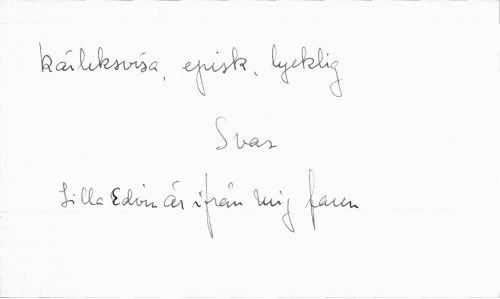 kärleksvisa, episk, lycklig
Svar
Lilla Edvin är ifrån mig faren